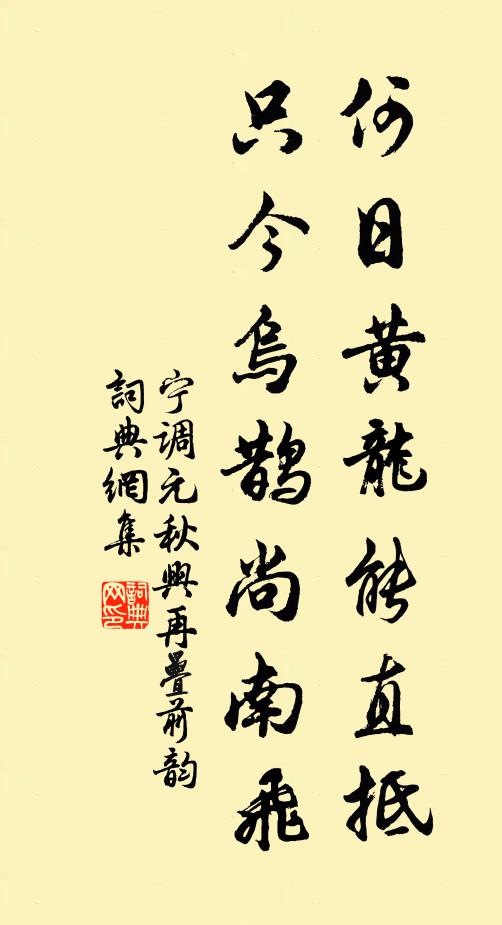 何日黄龍能直抵
只今烏鵲尚南飛
宁調元秋興再疊前韵
詞典網集
詞典网印